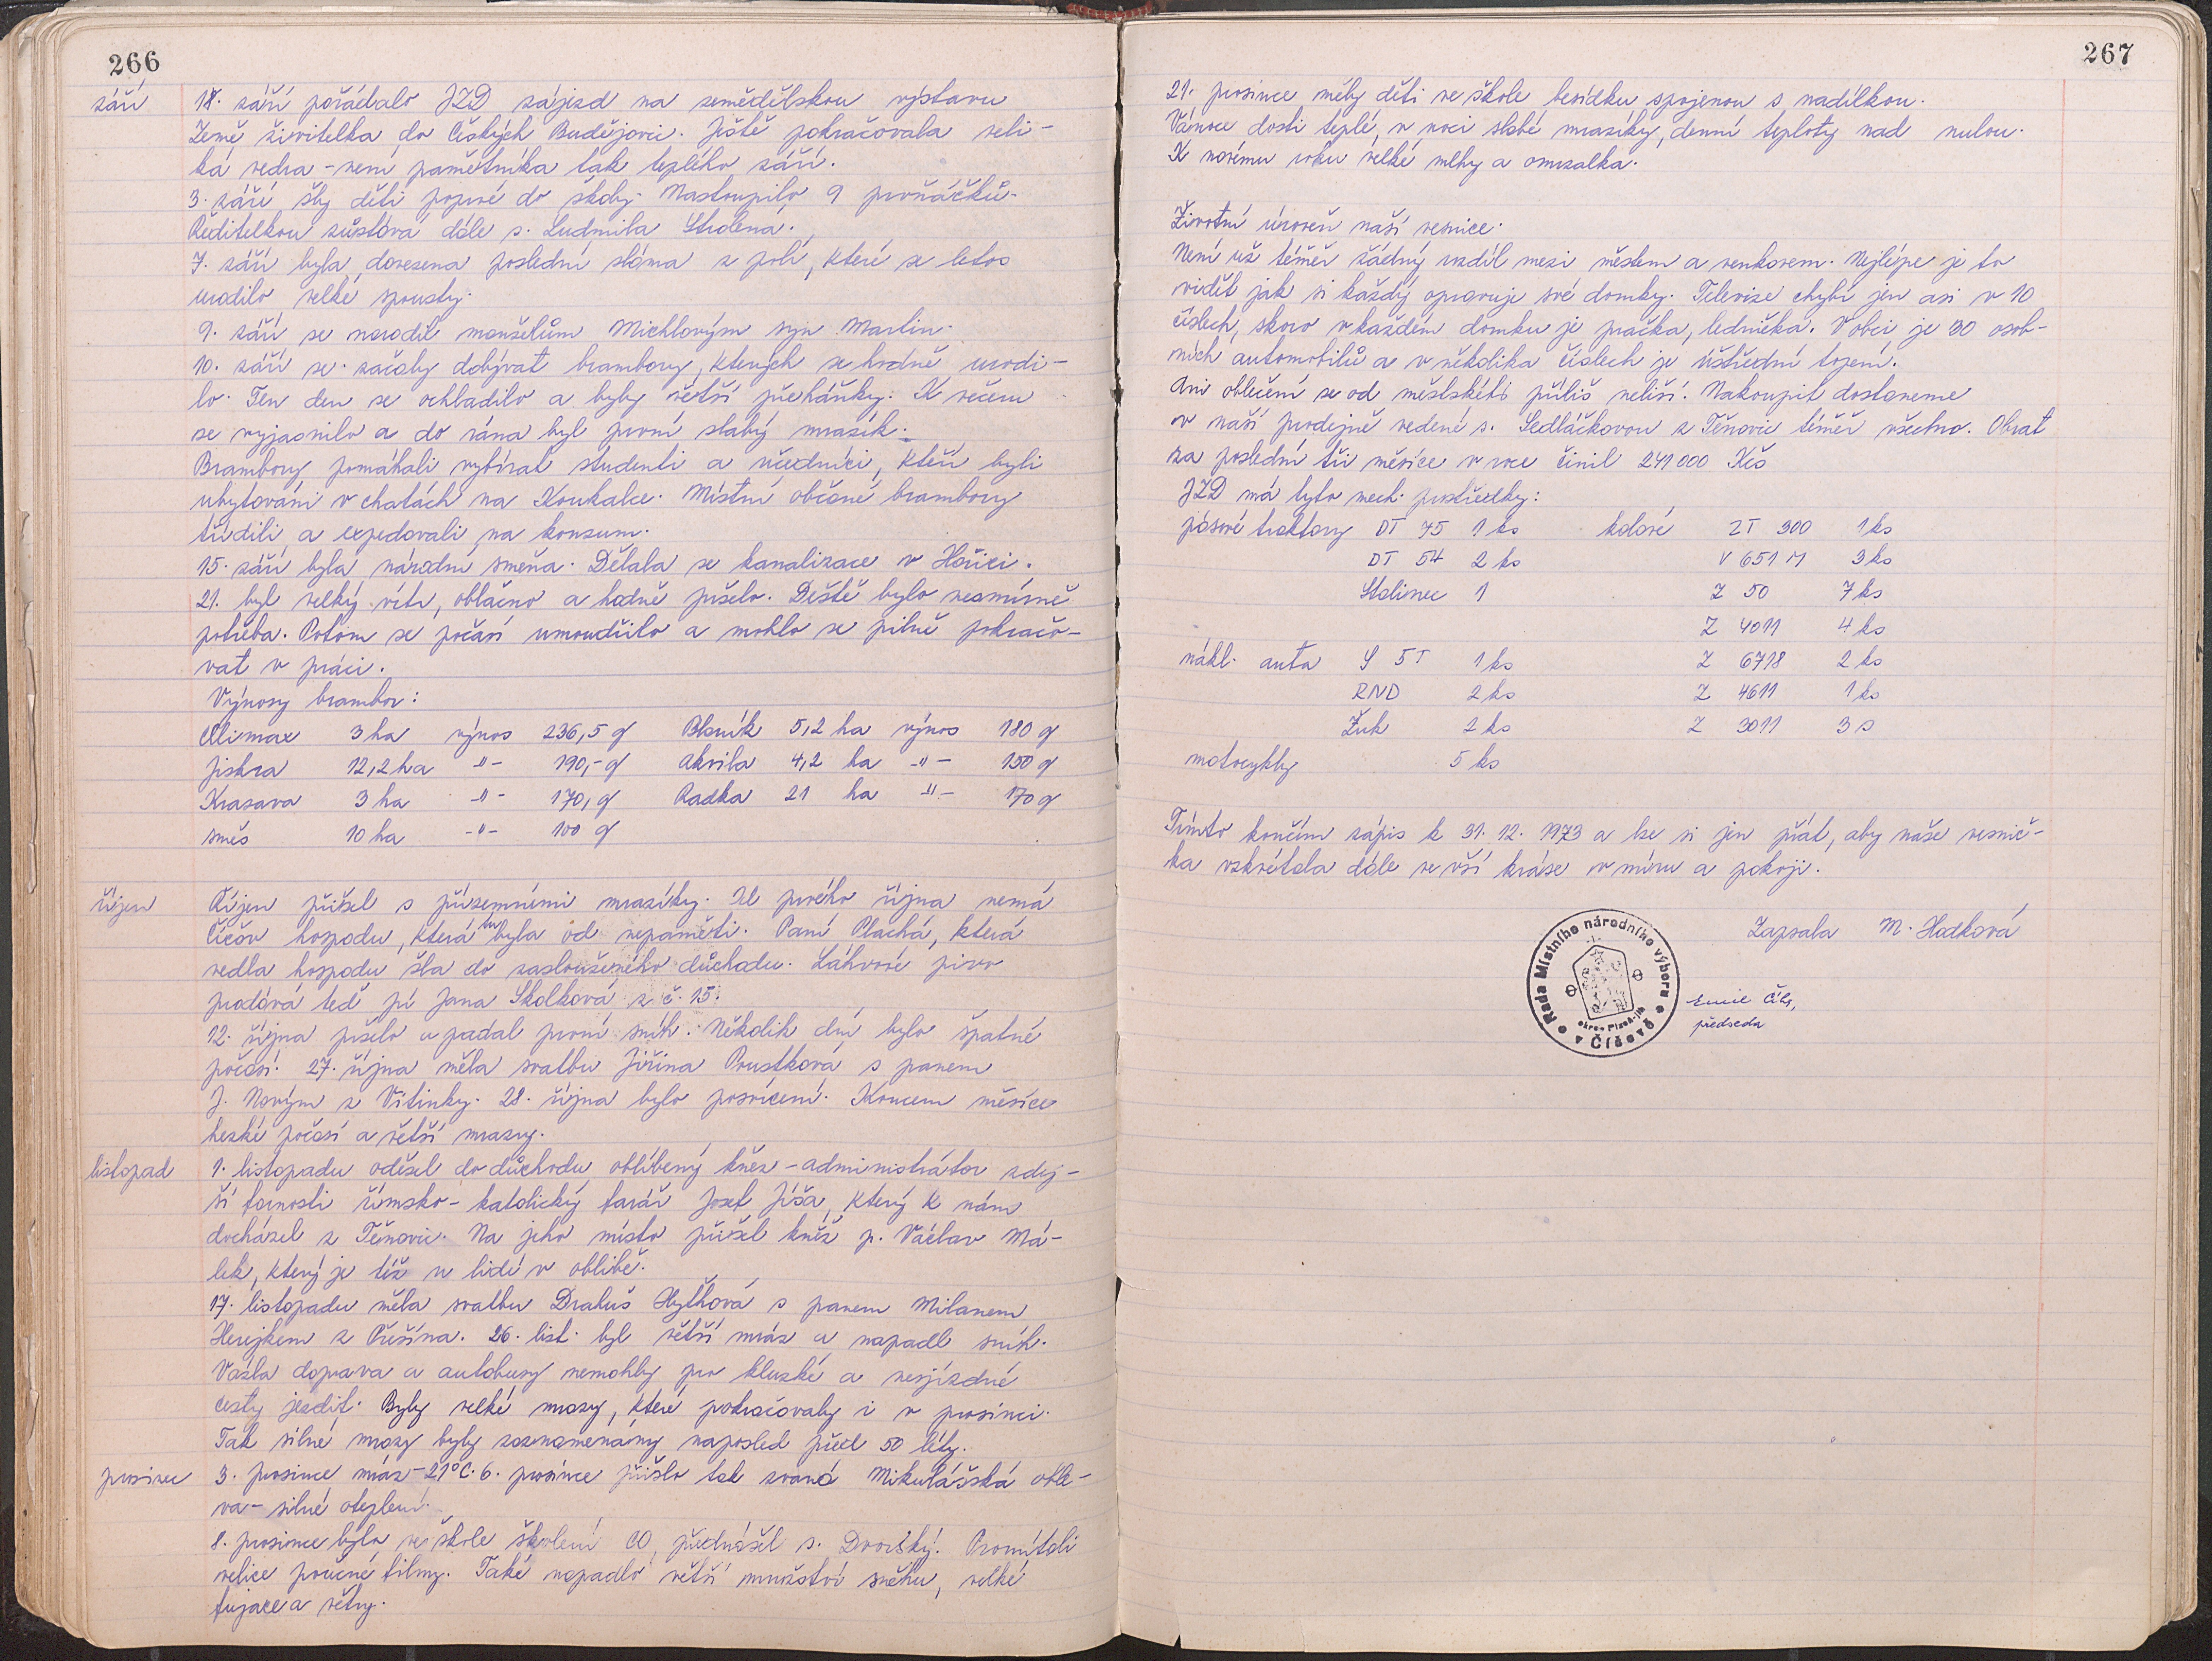 266
září
18. září pořádalo JZD zájezd na zemědělskou výstavu
Země živitelka do Českých Budějovic. Ještě pokračovala veli-
ká vedra - není pamětníka tak teplého září.
3. září šly děti poprvé do školy. Nastoupilo 9 prvňáčků.
Ředitelkou zůstává dále s. Ludmila
7. září byla dovezena poslední sláma z polí, které se letos
urodilo velké spousty.
9. září se narodil manželům Michlovým syn Martin.
10. září se začaly dobývat brambory, kterých se hodně urodi-
lo. Ten den se ochladilo a byly větší přeháňky. K večeru
se vyjasnilo a do rána byl první slabý mrazík.
Brambory pomáhali vybírat studenti a učedníci, kteří byli
ubytováni v chatách na Koukalce. Místní občané brambory
třídili a expedovali na konzum.
15. září byla národní směna. Dělala se kanalizace v Hořici.
21. byl velký vítr, oblačno a hodně pršelo. Deště bylo nesmírně
potřeba. Potom se počasí umoudřilo a mohlo se pilně pokračo-
vat v práci.
Výnosy brambor:
Climax 3 ha výnos 236,5 q Blaník 5,2 ha výnos 180 q
Jiskra 12,2 ha -"- 190,- q Akvila 4,2 ha -"- 150 q
Krasava 3 ha -"- 170,- q Radka 21 ha -"- 170 q
směs 10 ha -"- 100 q
říjen
Říjen přišel s přízemními mrazíky. Od prvého října nemá
Číčov hospodu, která tu byla od nepaměti. Paní Plachá, která
vedla hospodu šla do zaslouženého důchodu. Láhvové pivo
prodává teď pí Jana Skolková z č. 15.
12. října pršelo a padal první sníh. Několik dní bylo špatné
počasí. 27. října měla svatbu Jiřina Proustková s panem
J. Novým z Vitinky. 28. října bylo posvícení. Koncem měsíce
hezké počasí a větší mrazy.
listopad
1. listopadu odešel do důchodu oblíbený kněz - administrátor zdej-
ší farnosti římsko-katolický farář Josef Jíša, který k nám
docházel z Těnovic. Na jeho místo přišel kněz p. Václav Má-
lek, který je též u lidí v oblibě.
17. listopadu měla svatbu Drahuš s panem Milanem
Herejkem z Přešína. 26. list. byl větší mráz a napadl sníh.
Vázla doprava a autobusy nemohly pro kluzké a nesjízdné
cesty jezdit. Byly velké mrazy, které pokračovaly i v prosinci.
Tak silné mrazy byly zaznamenány naposled před 50 léty.
prosinec
3. prosince mráz -21°C. 6. prosince přišla tak zvaná Mikulášská oble-
va - silné oteplení.
8. prosince bylo ve škole školení CO, přednášel s. Dvorský. Promítali
velice poučné filmy. Také napadlo větší množství sněhu, velké
fujace a větry.
267
21. prosince měly děti ve škole besídku spojenou s nadílkou.
Vánoce dosti teplé, v noci slabé mrazíky, denní teploty nad nulou.
K novému roku velké mlhy a omrzalka.
Životní úroveň naší vesnice.
Není už téměř žádný rozdíl mezi městem a venkovem. Nejlépe je to
vidět jak si každý opravuje své domky. Televize chybí jen asi v 10
číslech, skoro v každém domku je pračka, lednička. V obci je 30 osob-
ních automobilů a v několika číslech je ústřední topení.
Ani oblečení se od městského příliš neliší. Nakoupit dostaneme
v naší prodejně vedené s. Sedláčkovou z Těnovic téměř všechno. Obrat
za poslední tři měsíce v roce činil 241 000 Kčs
JZD má tyto mech. prostředky:
pásové traktory DT 75 1 ks kolové ZT 300 1 ks
DT 54 2 ks V 651 M 3 ks
Stalinec 1 Z 50 7 ks
Z 4011 4 ks
nákl. auta S 5T 1 ks Z 6718 2 ks
RND 2 ks Z 4611 1 ks
Žuk 2 ks Z 3011 3 s
motocykly 5 ks
Tímto končím zápis k 31. 12. 1973 a lze si jen přát, aby naše vesnič-
ka vzkvétala dále ve vší kráse v míru a pokoji.
Zapsala M. Hodková
Rada Místního národního výboru
-1-
okres Plzeň-jih
v Číčově
Emil
předseda